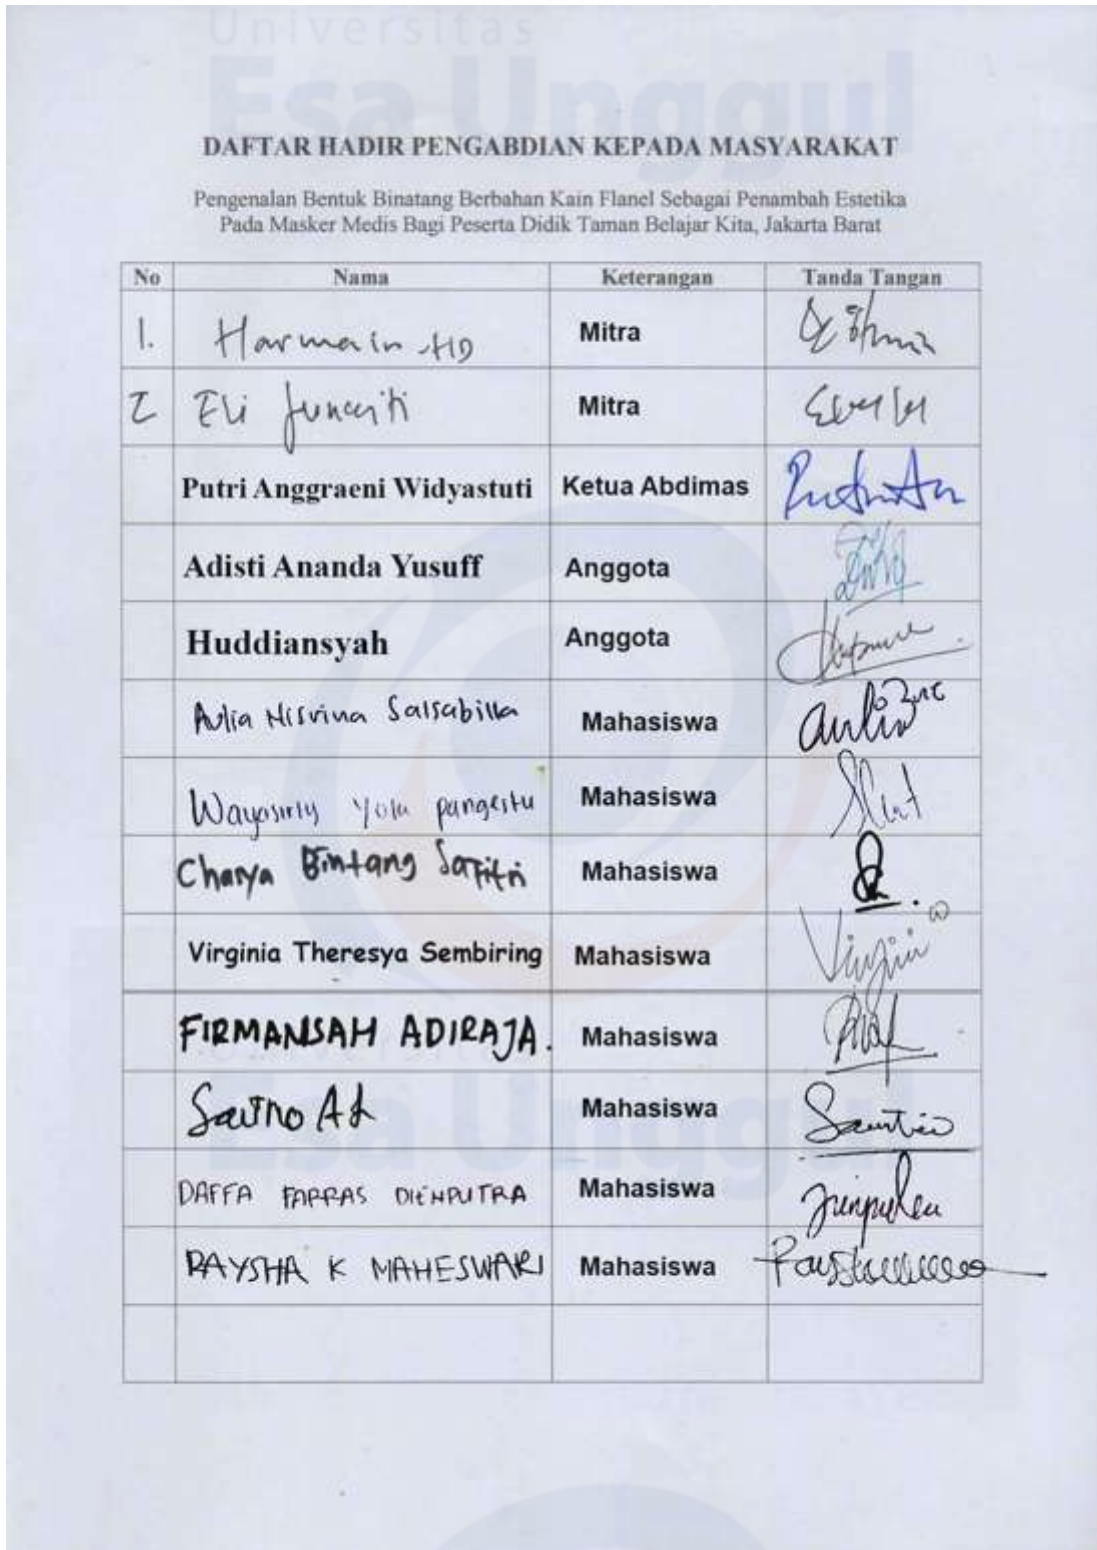 Universitas
Esa Unggul
DAFTAR HADIR PENGABDIAN KEPADA MASYARAKAT
Pengenalan Bentuk Binatang Berbahan Kain Flanel Sebagai Penambah Estetika
Pada Masker Medis Bagi Peserta Didik Taman Belajar Kita, Jakarta Barat
No Nama Keterangan Tanda Tangan
1. Harmain HD Mitra
2 Eli Mitra
Putri Anggraeni Widyastuti Ketua Abdimas
Adisti Ananda Yusuff Anggota
Huddiansyah Anggota
Aulia Nisrina Salsabilla Mahasiswa
Yola pangestu Mahasiswa
Bintang Safitri Mahasiswa
Virginia Theresya Sembiring Mahasiswa Virginia
FIRMANSAH ADIRAJA. Mahasiswa
Mahasiswa
DAFFA FARRAS DIENPUTRA Mahasiswa
RAYSHA K MAHESWARI Mahasiswa
Universitas
Esa Unggul